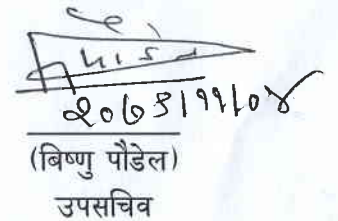 पौडेल
२०७९।११।०४
(बिष्णु पौडेल)
उपसचिव